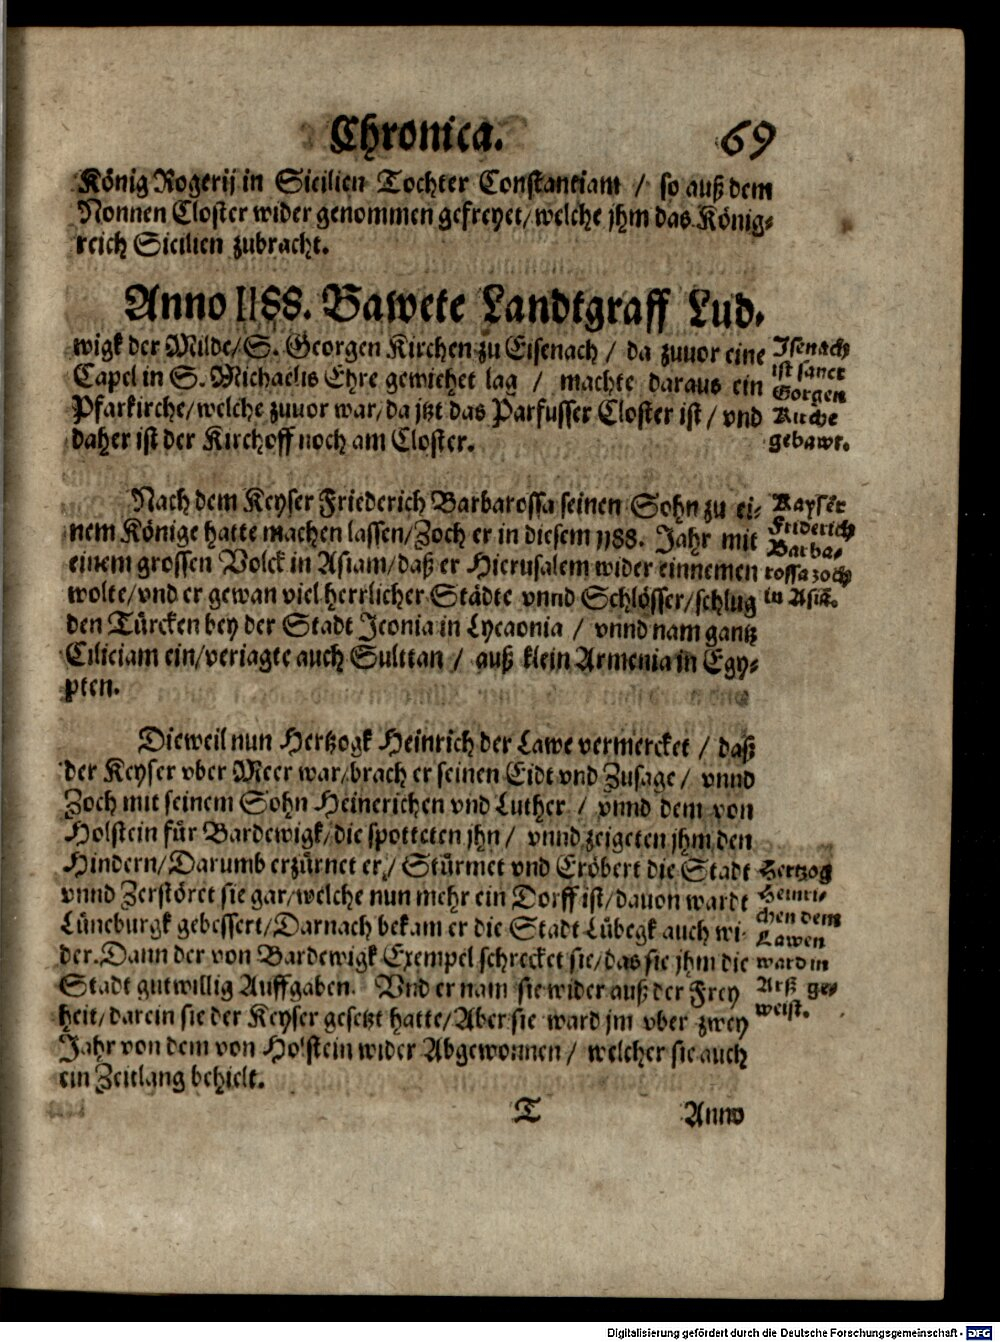 Chronica. 69
König Rogerij in Sicilien Tochter Constantiam / so auß dem
Nonnen Closter wider genommen gefreyet/welche jhm das König-
reich Sicilien zubracht.
Anno 1188. Bawete Landtgraff Lud-
wigk der Milde/S. Georgen Kirchen zu Eisenach / da zuuor eine
Capel in S. Michaelis Ehre gewiehet lag / machte daraus ein
Pfarkirche/welche zuuor war/da jtzt das Parfusser Closter ist/vnd
daher ist der Kirchoff noch am Closter.
Isenach
ist sanct
Gorgen
Kirche
gebawt.
Nach dem Keyser Friederich Barbarossa seinen Sohn zu ei-
nem Könige hatte machen lassen/Zoch er in diesem 1188. Jahr mit
einem grossen Volck in Asiam/daß er Hierusalem wider einnemen
wolte/vnd er gewan viel herrlicher Städte vnnd Schlösser/schlug
den Türcken bey der Stadt Iconia in Lycaonia / vnnd nam gantz
Ciliciam ein/veriagte auch Sulttan / auß klein Armenia in Egy-
pten.
Kayser
Friderich
Barba-
rossa zoch
in Asia.
Dieweil nun Hertzogk Heinrich der Lawe vermercket / daß
der Keyser vber Meer war/brach er seinen Eidt vnd Zusage / vnnd
Zoch mit seinem Sohn Heinerichen vnd Luther / vnnd dem von
Holstein für Bardewigk/die spotteten jhn / vnnd zeigeten jhm den
Hindern/Darumb erzürnet er / Stürmet vnd Eröbert die Stadt
vnnd Zerstöret sie gar/welche nun mehr ein Dorff ist/dauon wardt
Lüneburgk gebessert/Darnach bekam er die Stadt Lübegk auch wi-
der. Dann der von Bardewigk Exempel schrecket sie/das sie jhm die
Stadt gutwillig Auffgaben. Vnd er nam sie wider auß der Frey
heit/darein sie der Keyser gesetzt hatte/Aber sie ward jm vber zwey
Jahr von dem von Holstein wider Abgewonnen / welcher sie auch
ein Zeitlang behielt.
Hertzog
Heinri-
chen dem
Lawen
ward in
Arß ge-
weist.
T Anno
Digitalisierung gefördert durch die Deutsche Forschungsgemeinschaft - DFG